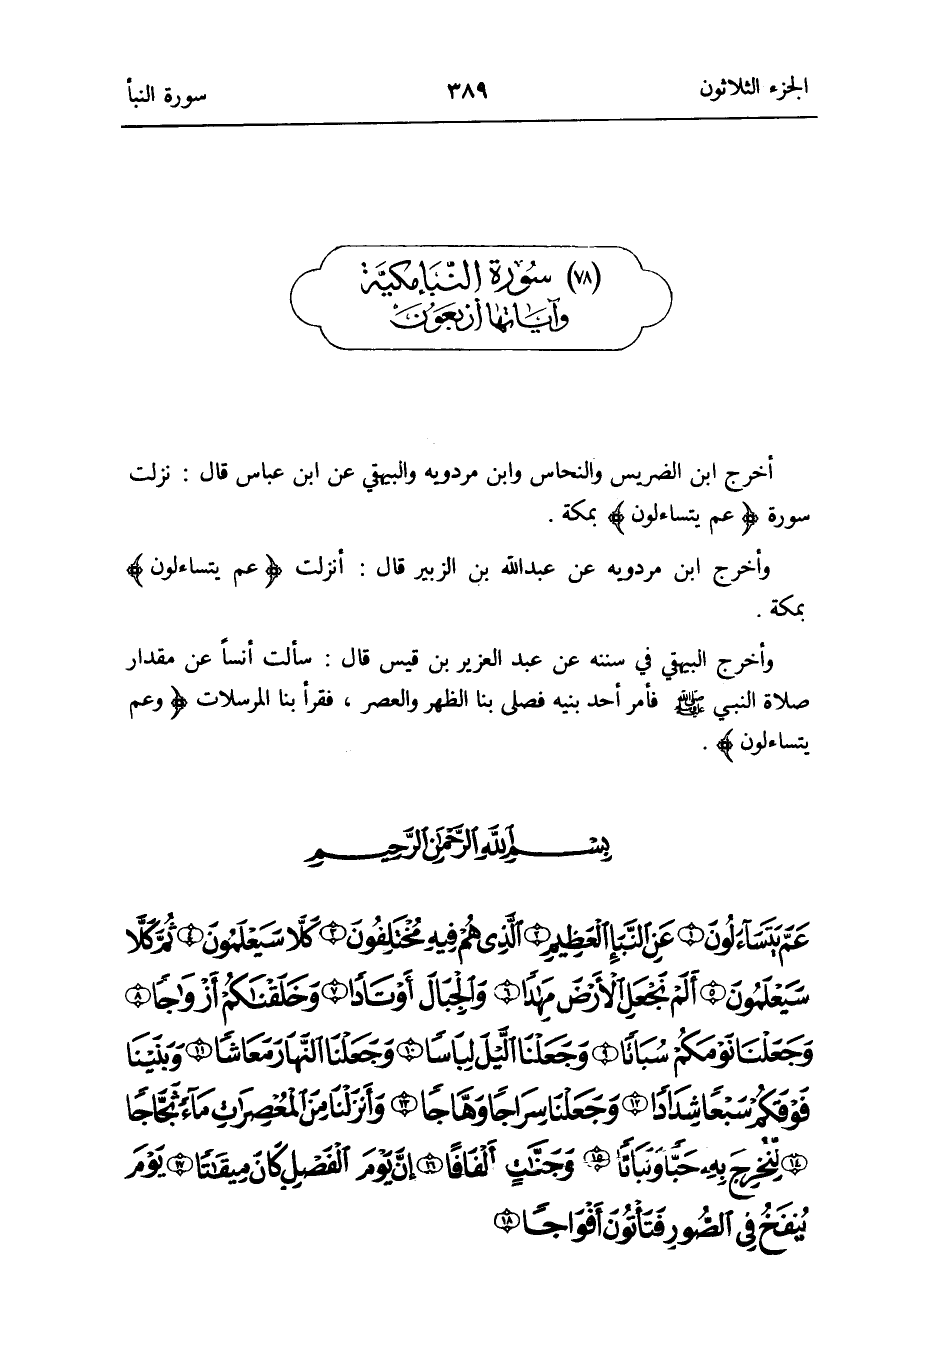 الجزء الثلاثون ٣٨٩ سورة النبأ
(٧٨) سُورَة النَّبَإِ مَكِّيَّة
وَآيَاتُهَا أَرْبَعُون
أخرج ابن الضريس والنحاس وابن مردويه والبيهقي عن ابن عباس قال : نزلت
سورة ﴿ عم يتساءلون ﴾ بمكة .
وأخرج ابن مردويه عن عبدالله بن الزبير قال : أنزلت ﴿ عم يتساءلون ﴾
بمكة .
وأخرج البيهقي في سننه عن عبد العزيز بن قيس قال : سألت أنساً عن مقدار
صلاة النبي ﷺ فأمر أحد بنيه فصلى بنا الظهر والعصر ، فقرأ بنا المرسلات ﴿ وعم
يتساءلون ﴾ .
بِسْمِ ٱللَّهِ ٱلرَّحْمَٰنِ ٱلرَّحِيمِ
عَمَّ يَتَسَآءَلُونَ ۝١ عَنِ ٱلنَّبَإِ ٱلْعَظِيمِ ۝٢ ٱلَّذِى هُمْ فِيهِ مُخْتَلِفُونَ ۝٣ كَلَّا سَيَعْلَمُونَ ۝٤ ثُمَّ كَلَّا
سَيَعْلَمُونَ ۝٥ أَلَمْ نَجْعَلِ ٱلْأَرْضَ مِهَٰدًا ۝٦ وَٱلْجِبَالَ أَوْتَادًا ۝٧ وَخَلَقْنَٰكُمْ أَزْوَٰجًا ۝٨
وَجَعَلْنَا نَوْمَكُمْ سُبَاتًا ۝٩ وَجَعَلْنَا ٱلَّيْلَ لِبَاسًا ۝١٠ وَجَعَلْنَا ٱلنَّهَارَ مَعَاشًا ۝١١ وَبَنَيْنَا
فَوْقَكُمْ سَبْعًا شِدَادًا ۝١٢ وَجَعَلْنَا سِرَاجًا وَهَّاجًا ۝١٣ وَأَنزَلْنَا مِنَ ٱلْمُعْصِرَٰتِ مَآءً ثَجَّاجًا
۝١٤ لِّنُخْرِجَ بِهِۦ حَبًّا وَنَبَاتًا ۝١٥ وَجَنَّٰتٍ أَلْفَافًا ۝١٦ إِنَّ يَوْمَ ٱلْفَصْلِ كَانَ مِيقَٰتًا ۝١٧ يَوْمَ
يُنفَخُ فِى ٱلصُّورِ فَتَأْتُونَ أَفْوَاجًا ۝١٨